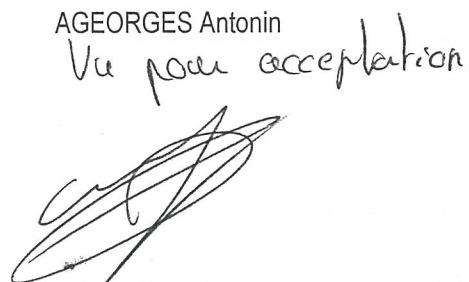 AGEORGES Antonin
Vu pour acceptation